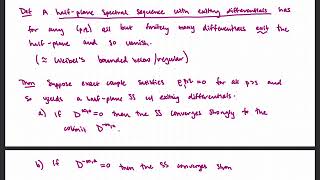 Def A half-plane spectral sequence with exiting differentials has
for any (p,q) all but finitely many differentials exit the
half-plane and so vanish.
(≈ Weibel's bounded below/regular)
Thm Suppose exact couple satisfies =0 for all p>s and
so yields a half-plane SS w/ exiting differentials.
a) If =0 then the SS converges strongly to the
colimit
b) If =0 then the SS converges